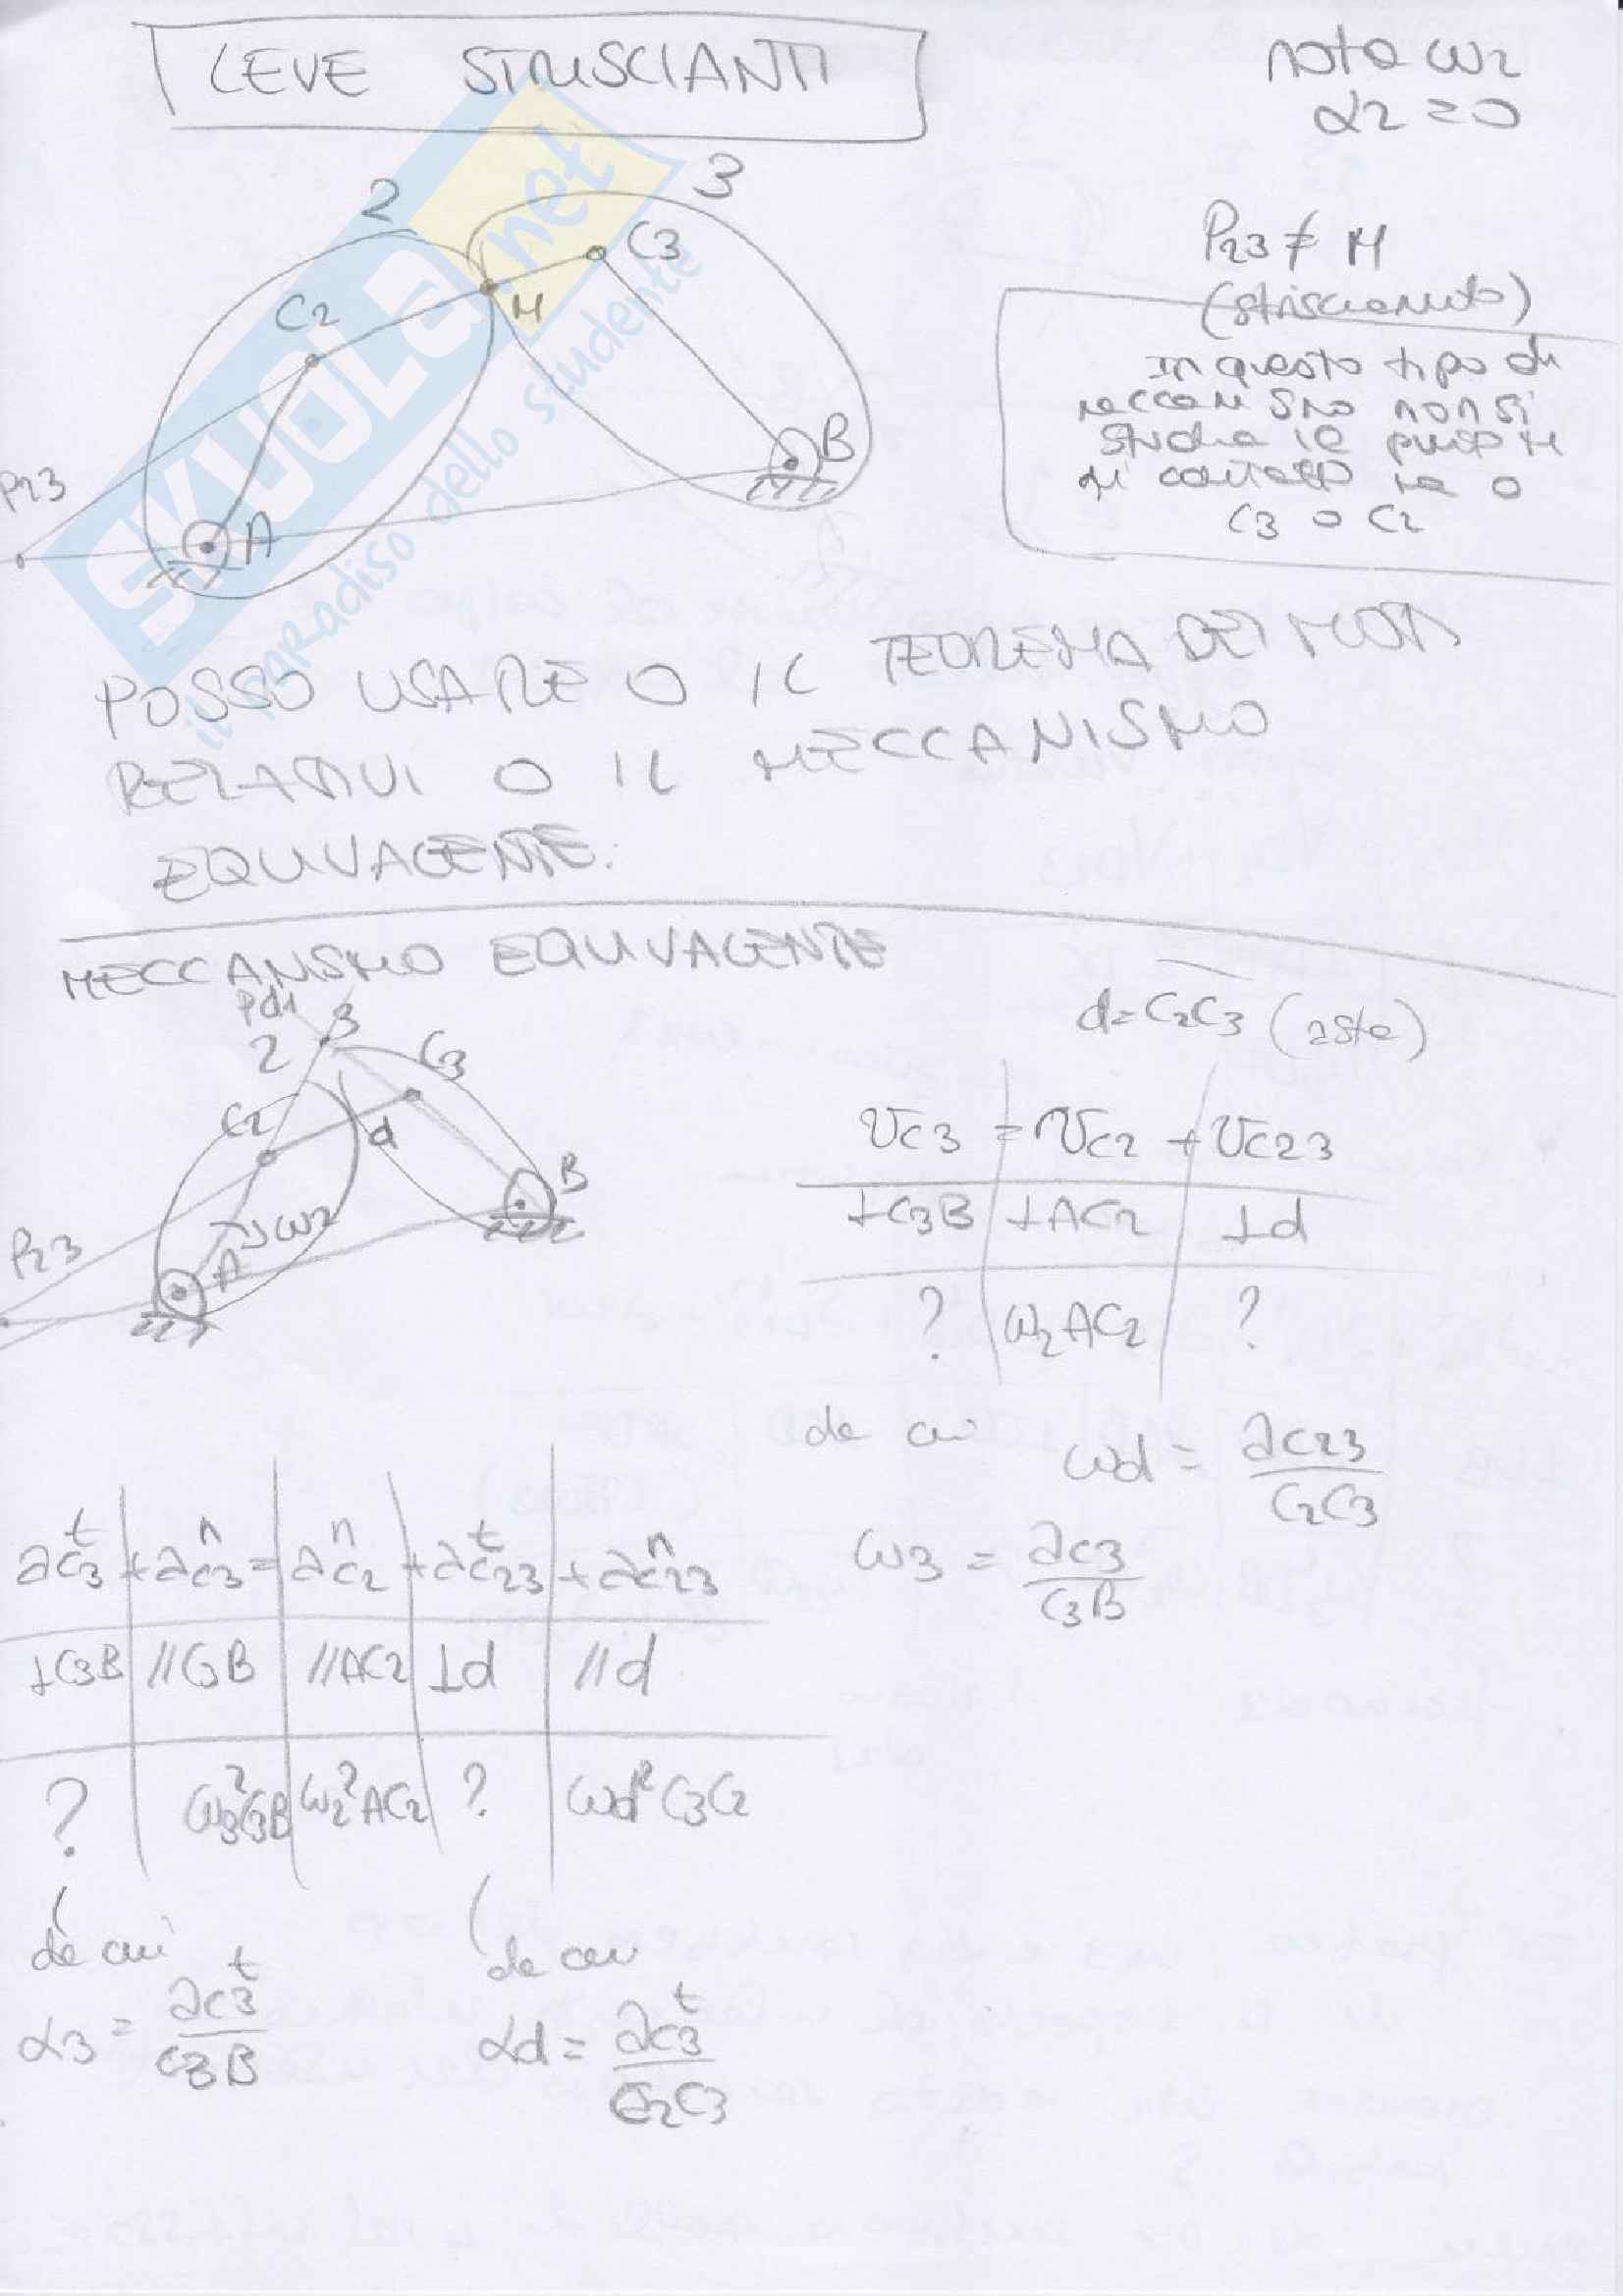 LEVE STRISCIANTI
nota ω2
α2 = 0
2
3
C3
C2
M
P23
A
B
P23 ≠ M
(strisciamento)
In questo tipo di
meccanismo non si
studia il punto M
di contatto ma o
C3 o C2
SKUOLA.net
il paradiso dello studente
POSSO USARE O IL TEOREMA DEI MOTI
RELATIVI O IL MECCANISMO
EQUIVALENTE.
MECCANISMO EQUIVALENTE
Pd1
2
3
C3
C2
d
B
ω2
A
P23
d = C2C3 (asta)
vC3 = vC2 + vC23
⊥C3B ⊥AC2 ⊥d
? ω2AC2 ?
da cui ωd = aC23 / C2C3
ω3 = aC3 / C3B
aC3^t + aC3^n = aC2^n + aC23^t + aC23^n
⊥C3B //C3B //AC2 ⊥d //d
? ω3²C3B ω2²AC2 ? ωd²C3C2
da cui
α3 = aC3^t / C3B
da cui
αd = aC3^t / C2C3